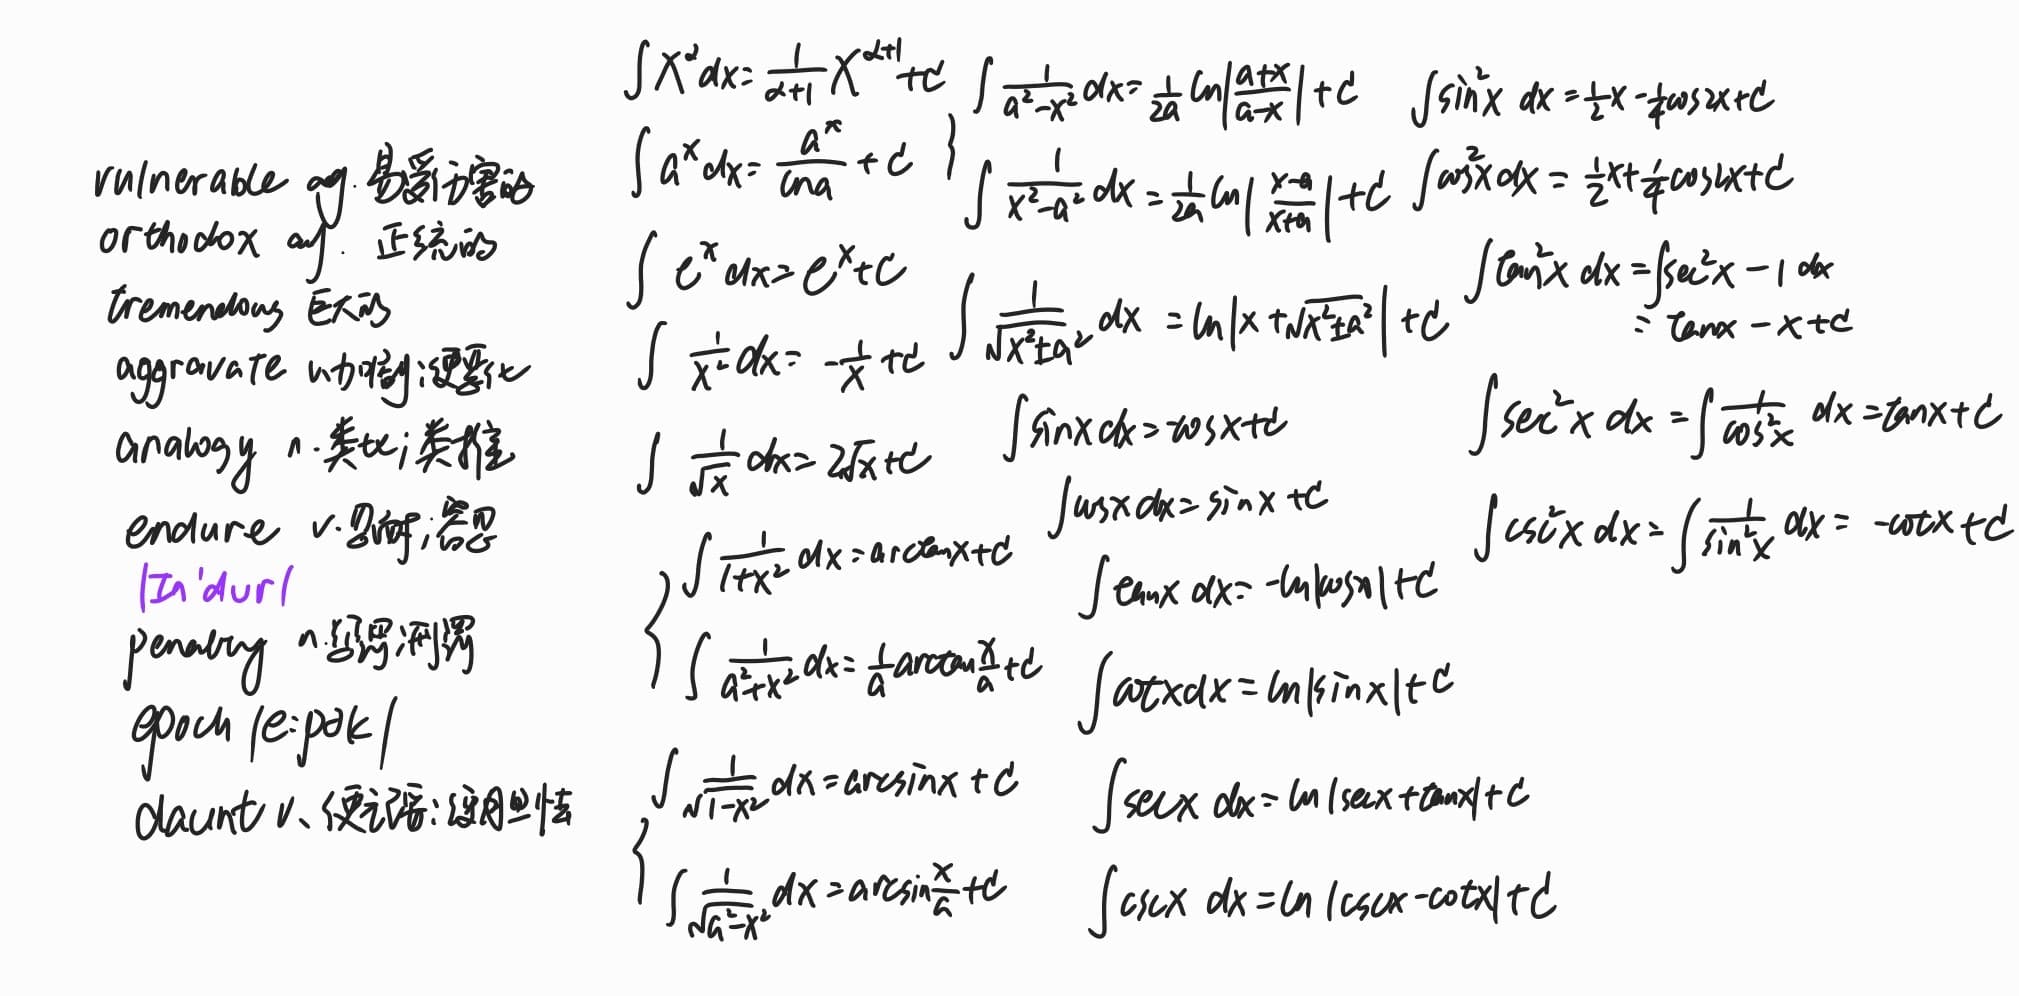 vulnerable adj. 易受伤害的
orthodox adj. 正统的
tremendous 巨大的
aggravate v.加剧;使恶化
analogy n.类比;类推
endure v.忍耐;容忍
/In'dur/
penalty n.惩罚;刑罚
epoch /e:pək/
daunt v、使气馁;使胆怯
∫x^α dx = 1/(α+1) x^(α+1) + C
∫a^x dx = a^x/lna + C
∫e^x dx = e^x + C
∫1/x² dx = -1/x + C
∫1/√x dx = 2√x + C
∫1/(1+x²) dx = arctanx + C
∫1/(a²+x²) dx = 1/a arctan x/a + C
∫1/√(1-x²) dx = arcsinx + C
∫1/√(a²-x²) dx = arcsin x/a + C
∫1/(a²-x²) dx = 1/2a ln|(a+x)/(a-x)| + C
∫1/(x²-a²) dx = 1/2a ln|(x-a)/(x+a)| + C
∫1/√(x²±a²) dx = ln|x+√(x²±a²)| + C
∫sinx dx = -cosx + C
∫cosx dx = sinx + C
∫tanx dx = -ln|cosx| + C
∫cotx dx = ln|sinx| + C
∫secx dx = ln|secx+tanx| + C
∫cscx dx = ln|cscx-cotx| + C
∫sin²x dx = 1/2 x - 1/4 cos2x + C
∫cos²x dx = 1/2 x + 1/4 cos2x + C
∫tan²x dx = ∫sec²x - 1 dx
= tanx - x + C
∫sec²x dx = ∫1/cos²x dx = tanx + C
∫csc²x dx = ∫1/sin²x dx = -cotx + C